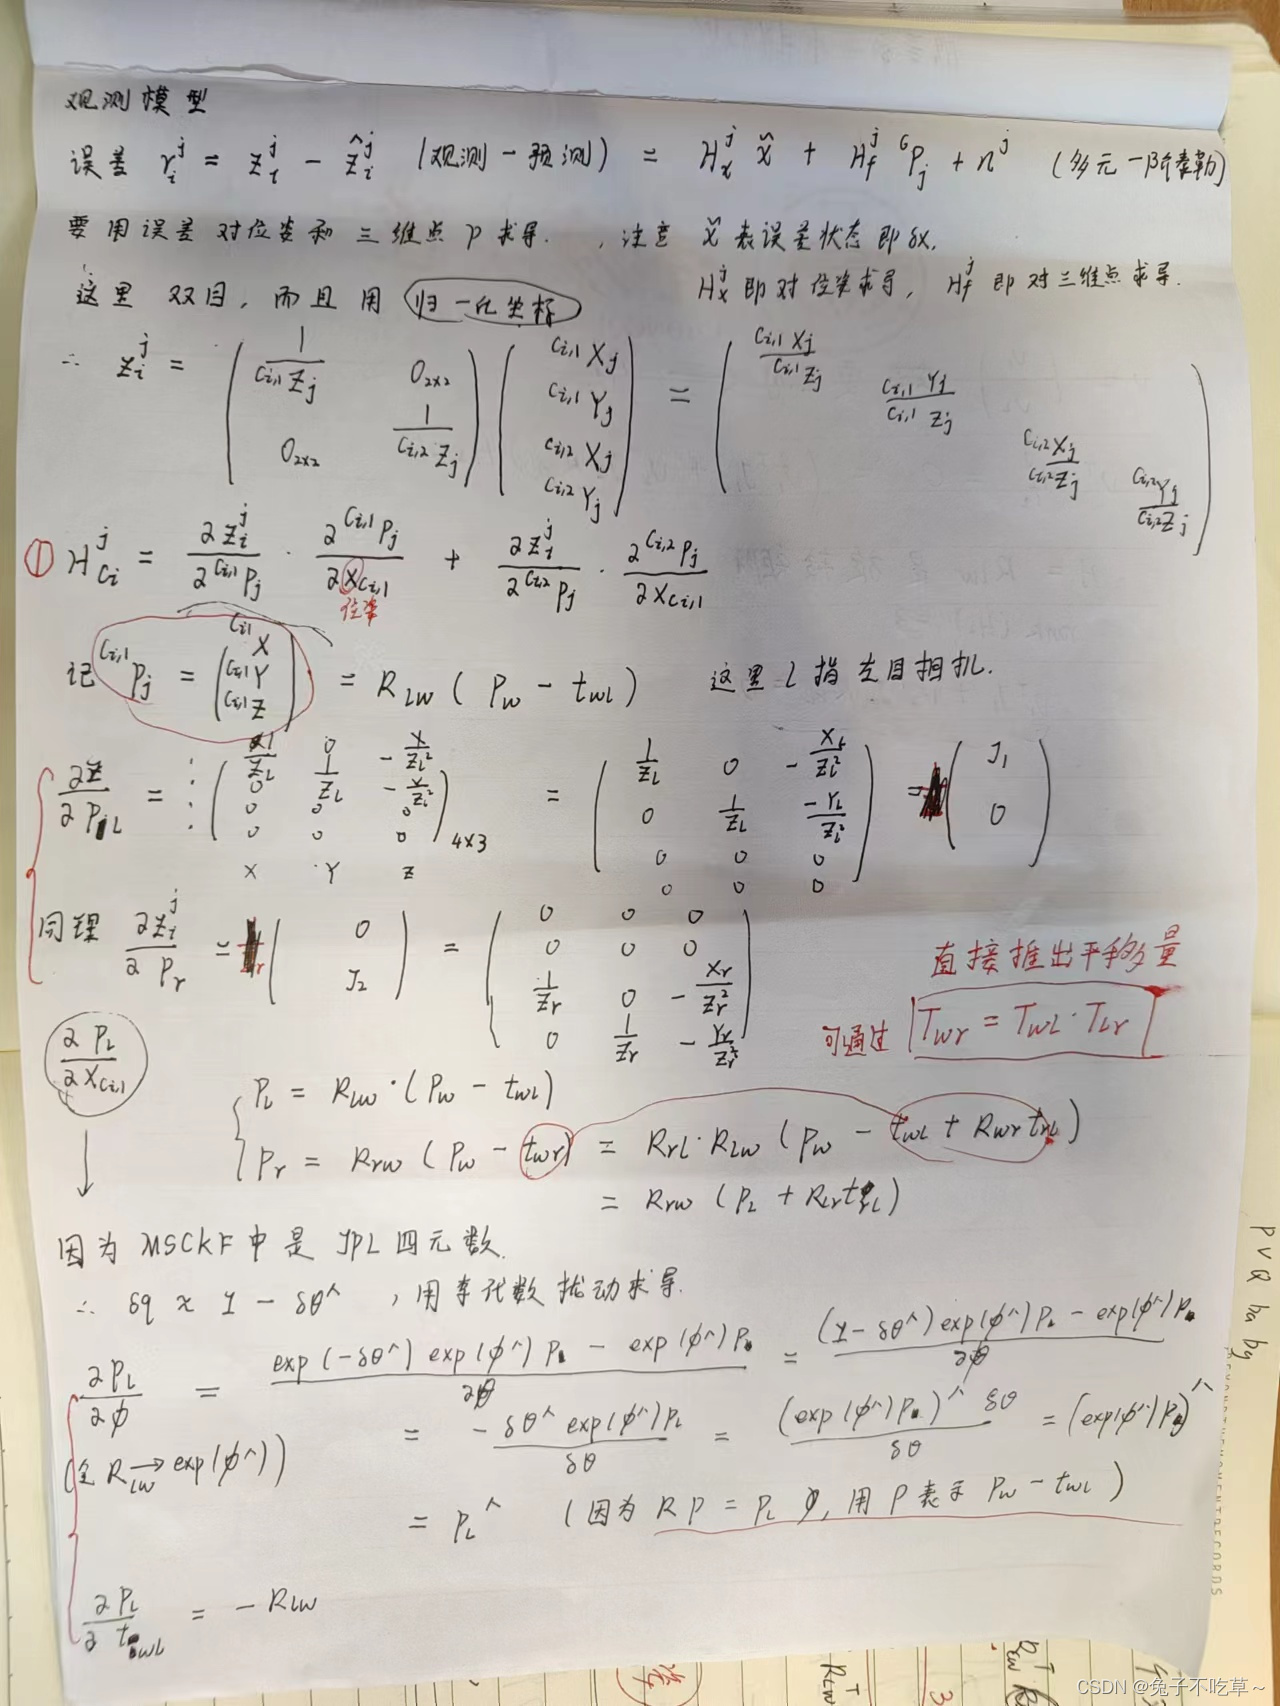 观测模型
误差 r_i^j = z_i^j - ẑ_i^j (观测-预测) = H_x^j x̃ + H_f^j ^G P_j + n^j (多元一阶泰勒)
要用误差对位姿和三维点P求导. , 注意 x̃ 表误差状态即δx.
这里 双目, 而且用 归一化坐标
H_x^j 即对位姿求导, H_f^j 即对三维点求导.
∴ z_i^j = ( 1/^{Ci,1}Z_j 0_{2x2} ; 0_{2x2} 1/^{Ci,2}Z_j ) ( ^{Ci,1}X_j ; ^{Ci,1}Y_j ; ^{Ci,2}X_j ; ^{Ci,2}Y_j ) = ( ^{Ci,1}X_j/^{Ci,1}Z_j ^{Ci,1}Y_j/^{Ci,1}Z_j ^{Ci,2}X_j/^{Ci,2}Z_j ^{Ci,2}Y_j/^{Ci,2}Z_j )
① H_{Ci}^j = ∂z_i^j/∂^{Ci,1}P_j · ∂^{Ci,1}P_j/∂X_{Ci,1} + ∂z_i^j/∂^{Ci,2}P_j · ∂^{Ci,2}P_j/∂X_{Ci,1}
位姿
记 ^{Ci,1}P_j = ( ^{Ci,1}X ; ^{Ci,1}Y ; ^{Ci,1}Z ) = R_{LW} ( P_W - t_{WL} ) 这里 L 指左目相机.
∂z/∂P_{jL} = ( 1/Z_L 0 -X/Z_L² ; 0 1/Z_L -Y/Z_L² ; 0 0 0 ; 0 0 0 )_{4x3} = ( 1/Z_L 0 -X_L/Z_L² ; 0 1/Z_L -Y_L/Z_L² ; 0 0 0 ; 0 0 0 ) = ( J_1 ; 0 )
X Y Z
同理 ∂z_i^j/∂P_r = ( 0 ; J_2 ) = ( 0 0 0 ; 0 0 0 ; 1/Z_r 0 -X_r/Z_r² ; 0 1/Z_r -Y_r/Z_r² )
直接推出平移量
可通过 T_{Wr} = T_{WL} · T_{Lr}
∂P_L/∂X_{Ci,1}
P_L = R_{LW} · (P_W - t_{WL})
P_r = R_{rW} (P_W - t_{Wr}) = R_{rL} · R_{LW} (P_W - t_{WL} + R_{Wr} t_{rL})
= R_{rW} (P_L + R_{Lr} t_{rL})
因为 MSCKF中是 JPL 四元数.
∴ δq ≈ I - δθ^ , 用李代数扰动求导.
∂P_L/∂φ = exp(-δθ^) exp(φ^) P - exp(φ^) P / ∂φ = (I - δθ^) exp(φ^) P_L - exp(φ^) P / ∂φ
(全 R_{LW} → exp(φ^)) = -δθ^ exp(φ^) P_L / δθ = (exp(φ^) P)^ δθ / δθ = (exp(φ^) P)^
= P_L^ (因为 RP = P_L , 用 P 表示 P_W - t_{WL})
∂P_L/∂t_{WL} = -R_{LW}
P V Q ba bg
CSDN @兔子不吃草～